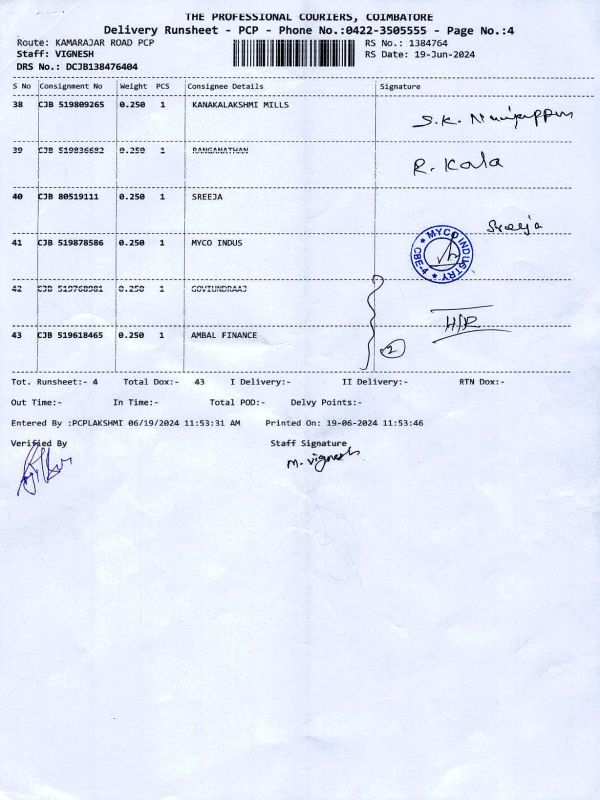 THE PROFESSIONAL COURIERS, COIMBATORE
Delivery Runsheet - PCP - Phone No.:0422-3505555 - Page No.:4
Route: KAMARAJAR ROAD PCP RS No.: 1384764
Staff: VIGNESH RS Date: 19-Jun-2024
DRS No.: DCJB138476404
S No Consignment No Weight PCS Consignee Details Signature
38 CJB 519809265 0.250 1 KANAKALAKSHMI MILLS
S.K.
39 CJB 519836682 0.250 1 RANGANATHAN R. Kala
40 CJB 80519111 0.250 1 SREEJA
Sreeja
41 CJB 519878586 0.250 1 MYCO INDUS MYCO INDUSTRY CBE-4
42 CJB 519768981 0.250 1 GOVIUNDRAAJ
43 CJB 519618465 0.250 1 AMBAL FINANCE 2
Tot. Runsheet:- 4 Total Dox:- 43 I Delivery:- II Delivery:- RTN Dox:-
Out Time:- In Time:- Total POD:- Delvy Points:-
Entered By :PCPLAKSHMI 06/19/2024 11:53:31 AM Printed On: 19-06-2024 11:53:46
Verified By Staff Signature
M. Vignesh